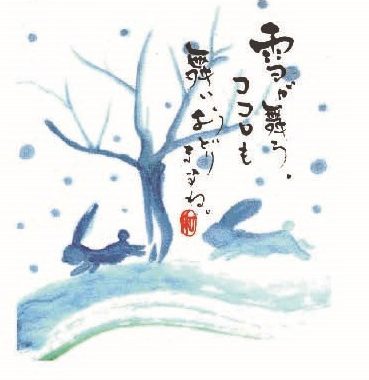 雪が舞う、
ココロも
舞い、おどり
ますね。